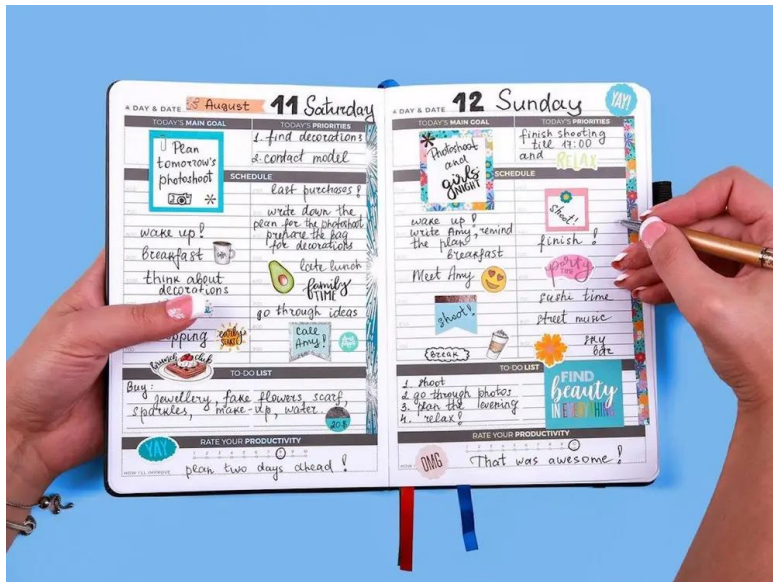 4 DAY & DATE
August
11 Saturday
TODAY'S MAIN GOAL
TODAY'S PRIORITIES
Plan
tomorrow's
photoshoot
1. find decorations
2. contact model
SCHEDULE
wake up!
breakfast
think about
decorations
brunch club
last purchases!
write down the
plan for the photoshoot
prepare the bag
for decorations
late lunch
family
TIME
go through ideas
CALL
Amy!
TO-DO LIST
Buy:
jewellery, fake flowers, scarf,
sparkles, make-up, water...
20$
YAY
RATE YOUR PRODUCTIVITY
HOW I'LL IMPROVE
plan two days ahead!
4 DAY & DATE
12 Sunday
YAY!
TODAY'S MAIN GOAL
TODAY'S PRIORITIES
Photoshoot
and
girls
NIGHT
finish shooting
till 17:00
and RELAX
SCHEDULE
wake up!
write Amy, remind
the plan
breakfast
Meet Amy
shoot!
BREAK
shoot!
finish!
party
TIME
sushi time
street music
sky
bar
TO-DO LIST
1. shoot
2 go through photos
3. plan the evening
4. relax!
FIND
beauty
IN EVERYTHING
RATE YOUR PRODUCTIVITY
OMG
That was awesome!